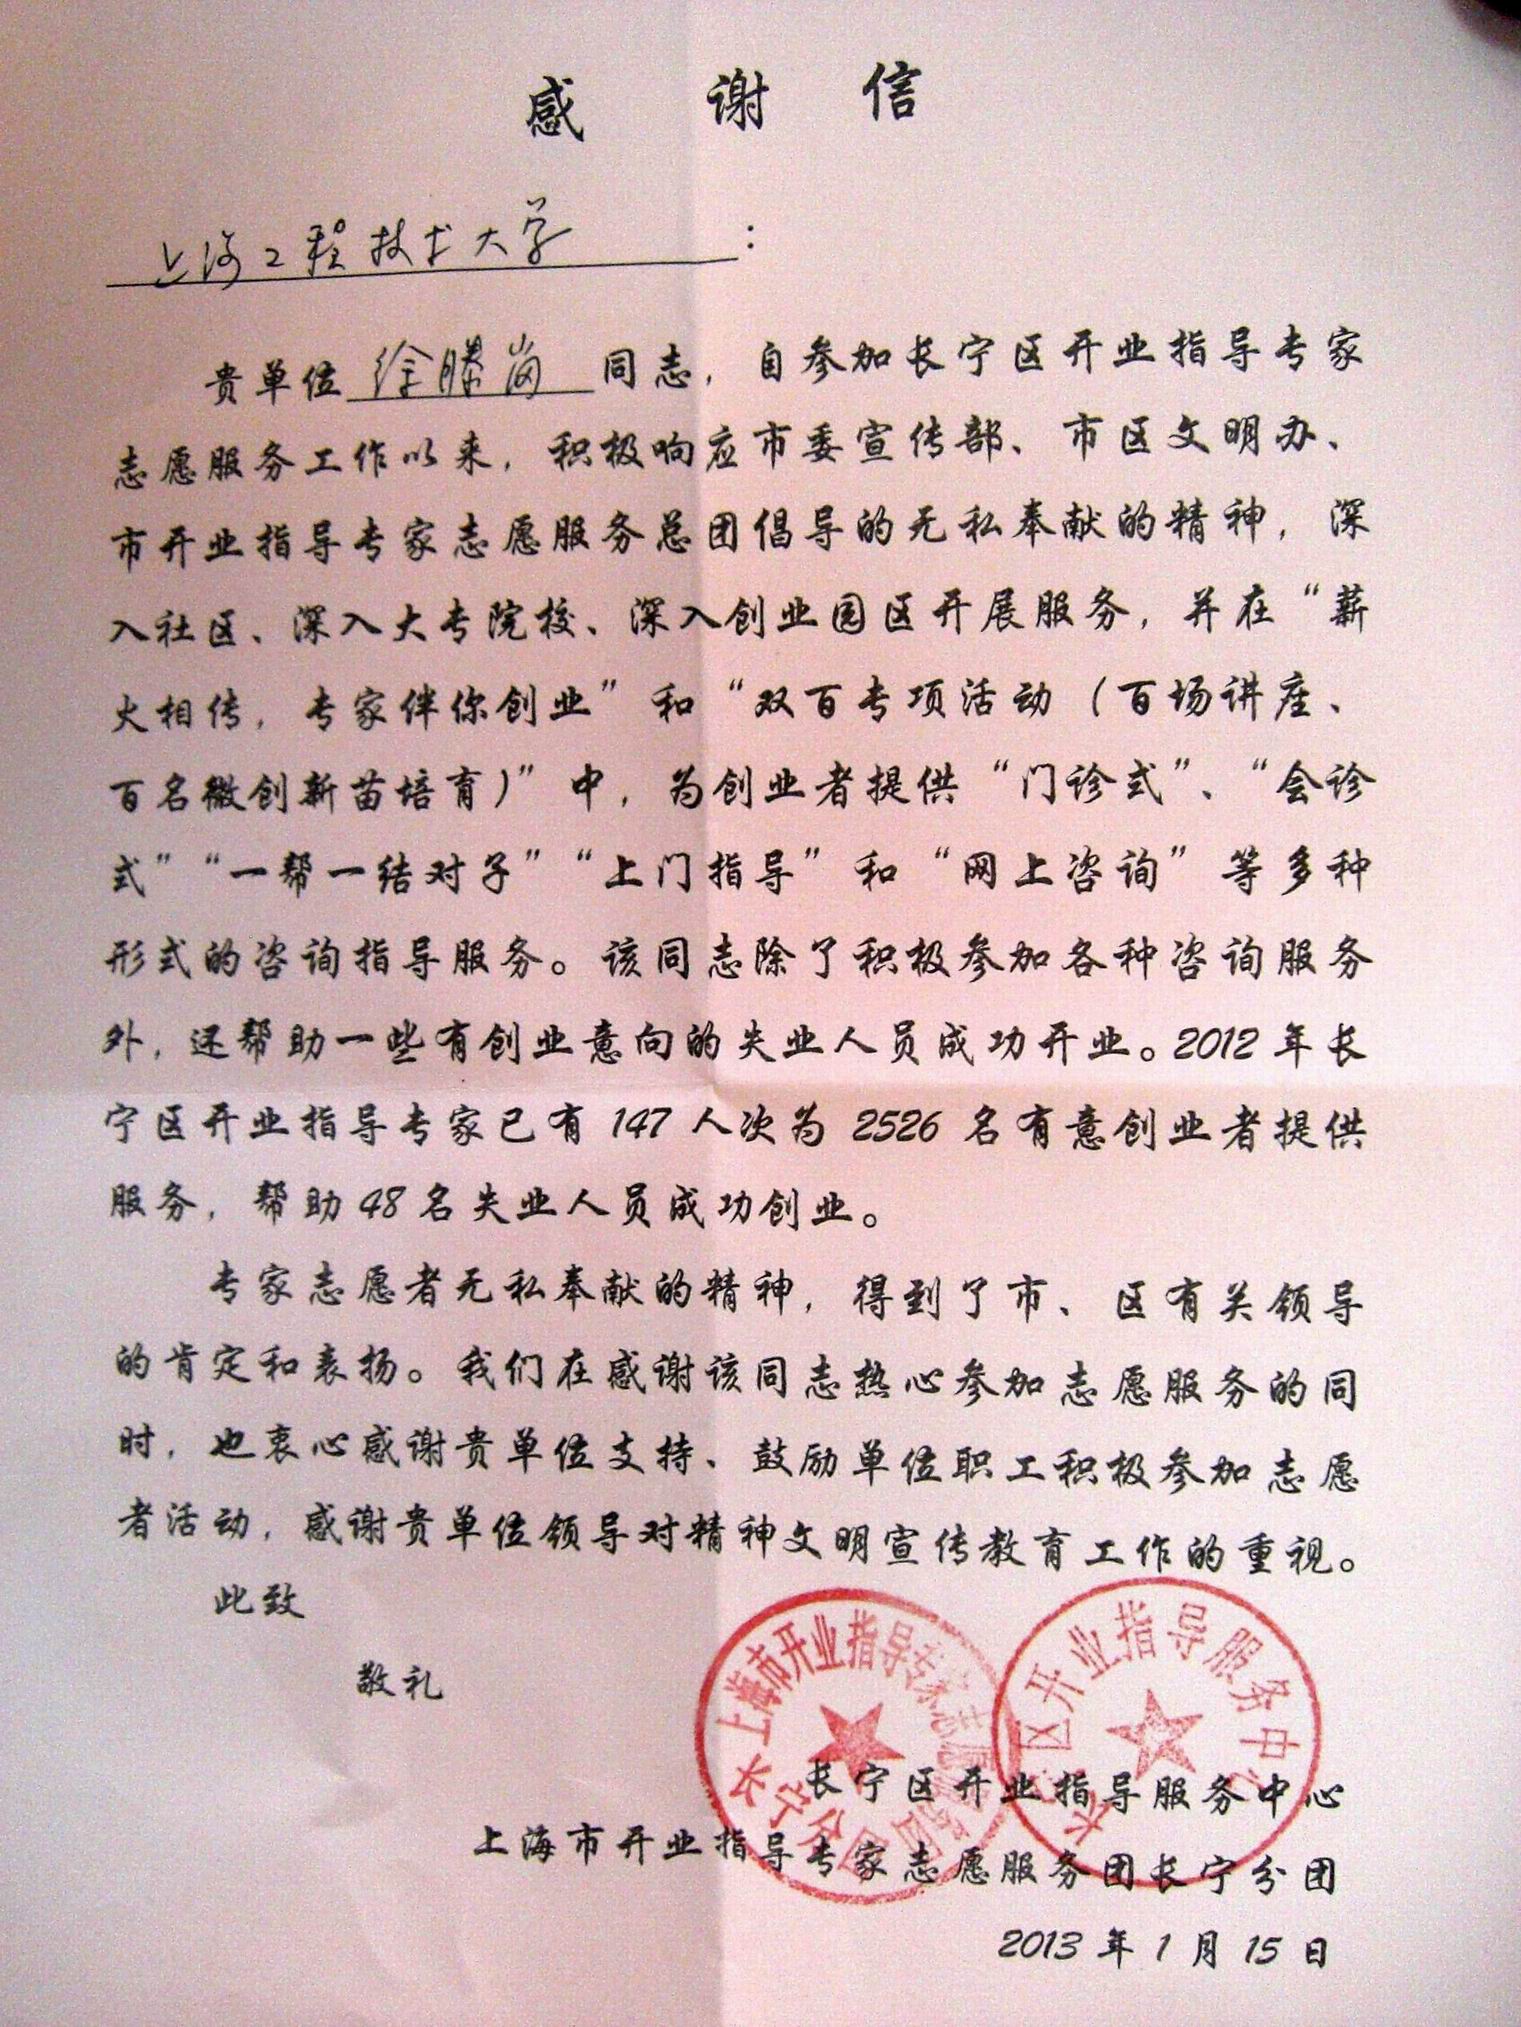 感谢信
上海工程技术大学：
贵单位徐腾岗同志，自参加长宁区开业指导专家
志愿服务工作以来，积极响应市委宣传部、市区文明办、
市开业指导专家志愿服务总团倡导的无私奉献的精神，深
入社区、深入大专院校、深入创业园区开展服务，并在“薪
火相传，专家伴你创业”和“双百专项活动（百场讲座、
百名微创新苗培育）”中，为创业者提供“门诊式”、“会诊
式”“一帮一结对子”“上门指导”和“网上咨询”等多种
形式的咨询指导服务。该同志除了积极参加各种咨询服务
外，还帮助一些有创业意向的失业人员成功开业。2012年长
宁区开业指导专家已有147人次为2526名有意创业者提供
服务，帮助48名失业人员成功创业。
专家志愿者无私奉献的精神，得到了市、区有关领导
的肯定和表扬。我们在感谢该同志热心参加志愿服务的同
时，也衷心感谢贵单位支持、鼓励单位职工积极参加志愿
者活动，感谢贵单位领导对精神文明宣传教育工作的重视。
此致
敬礼
长宁区开业指导服务中心
上海市开业指导专家志愿服务团长宁分团
2013年1月15日
上海市开业指导专家志愿服务团
长宁分团
长宁区开业指导服务中心